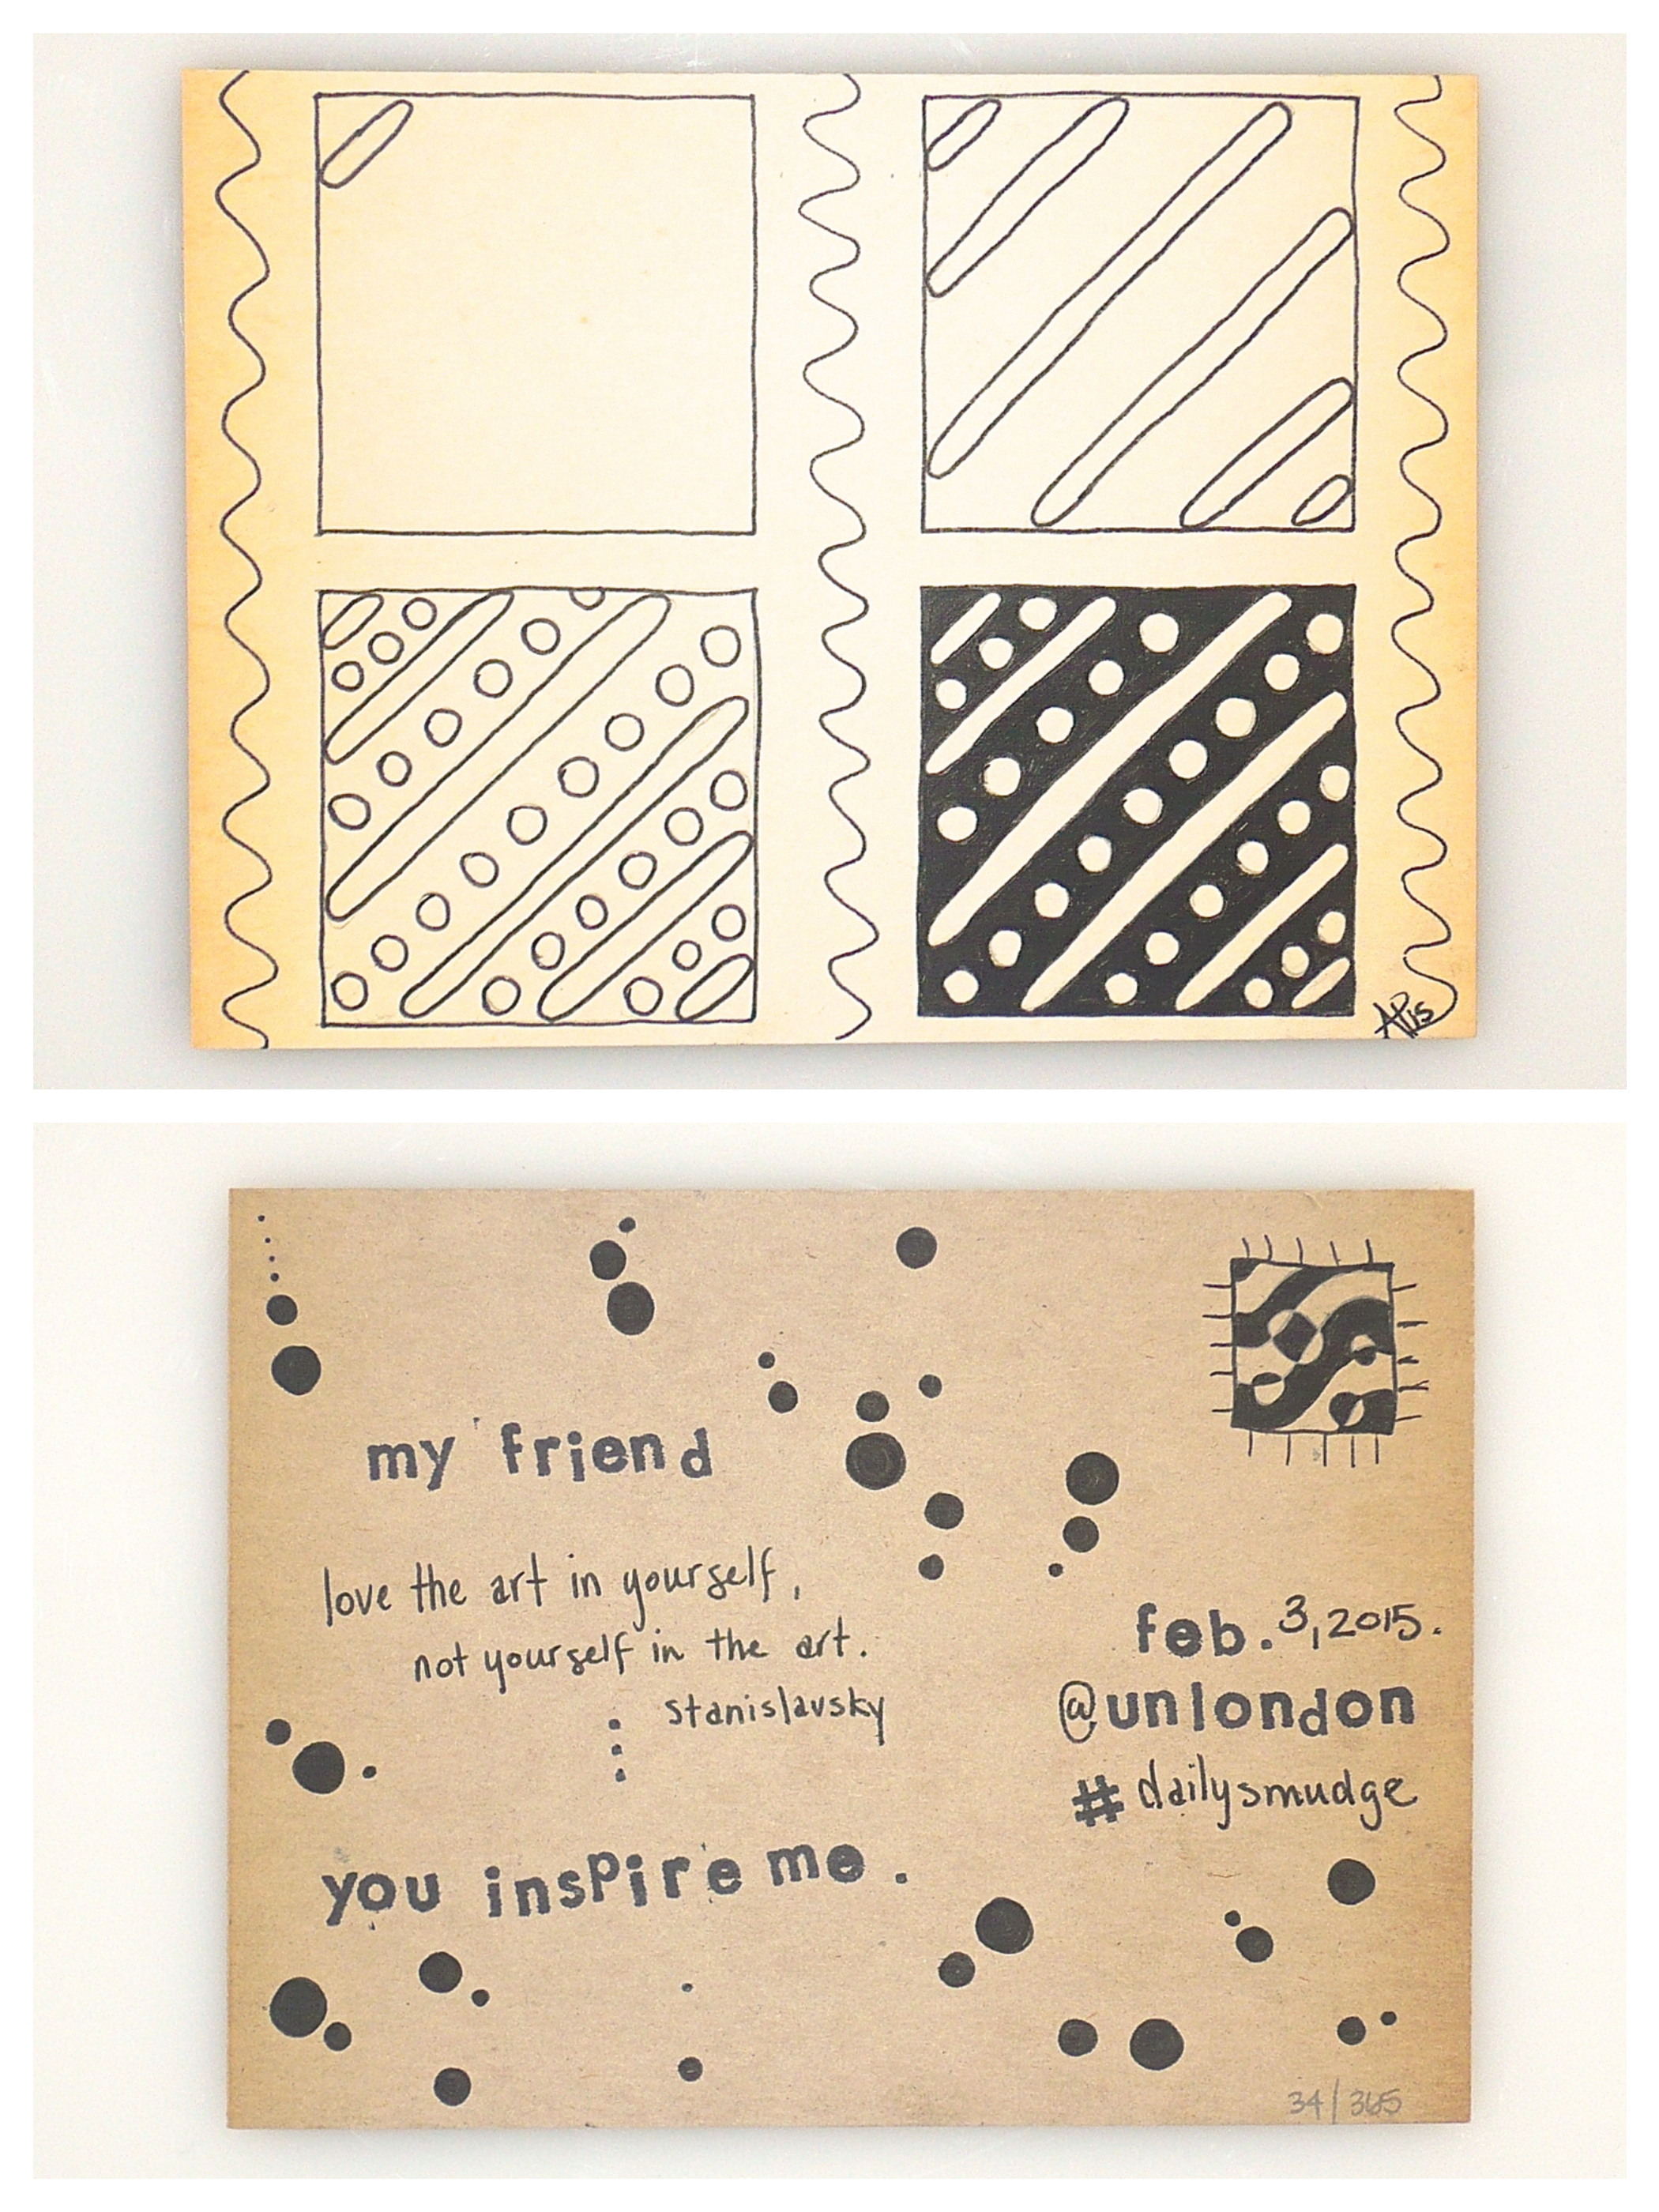 AP15
my friend
love the art in yourself,
not yourself in the art.
stanislavsky
you insPire me.
feb. 3, 2015.
@unlondon
#dailysmudge
34/365